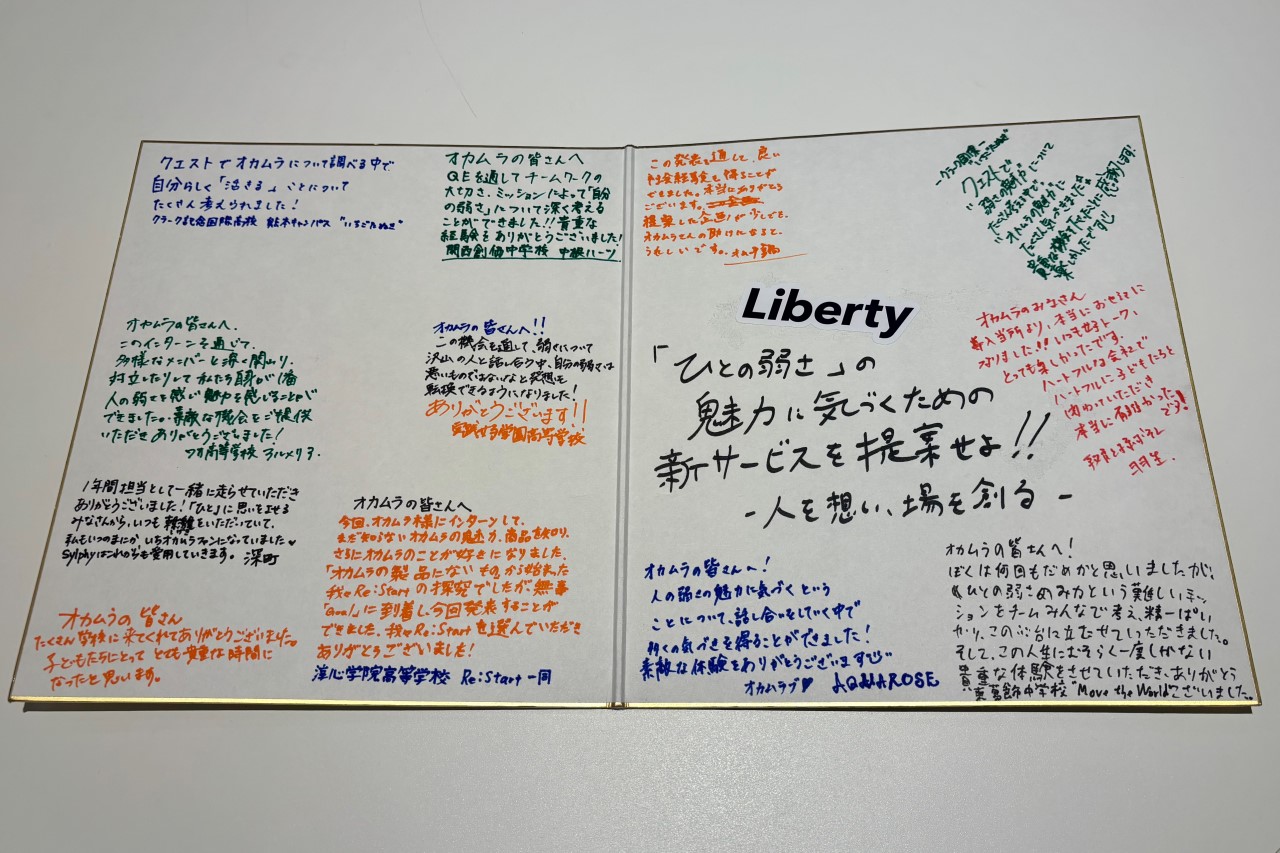 クエストでオカムラについて調べる中で、
自分らしく「活きる」ことについて
たくさん考えられました!
クラーク記念国際高校 "いちごたぬき"
オカムラの皆さんへ
QEを通してチームワークの
大切さ、ミッションによって「自分
の弱さ」について深く考える
ことができました!!貴重な
経験をありがとうございました!
関西創価中学校 中根ハーツ
オカムラの皆さんへ、
このインターンを通じて、
多様なメンバーと深く関わり、
対立したりして私たち自身が1番
人の弱さを感じ魅力を感じることが
できました。素敵な機会をご提供
いただきありがとうございました!
高等学校 アルメリア
オカムラの皆さんへ!!
この機会を通して、弱さについて
沢山の人と話し合う中、自分の弱さは
悪いものではないなと発想を
転換できるようになりました!
ありがとうございます!!
実践学園高等学校
1年間担当として一緒に走らせていただき
ありがとうございました!「ひと」に思いをよせる
みなさんから、いつも刺激をいただいていて、
私もいつのまにか、いちオカムラファンになっていました♥
Sylphyはこれからも愛用していきます。 深町
オカムラの皆さんへ
今回、オカムラ様にインターンして、
まだ知らないオカムラの魅力、商品を知り、
さらにオカムラのことが好きになりました。
「オカムラの製品にないもの」から始まった
我々Re:Startの探究でしたが、無事
「Goal」に到着し、今回発表することが
できました。我々Re:Startを選んでいただき
ありがとうございました!
淳心学院高等学校 Re:Start一同
オカムラの皆さん
たくさん学校に来てくれてありがとうございました。
子どもたちにとって とても貴重な時間に
なったと思います。
この発表を通して、良い
社会経験を得ることが
できました。本当にありがとう
ございます。
提案した企画が少しでも、
オカムラさんの助けになると、
うれしいです。
クエストで
"弱さの魅力"について
たくさん考えて、
"オカムラの魅力"に
たくさん気づきました。
貴重な機会を下さったことに感謝します!
楽しかったです!
Liberty
「ひとの弱さ」の
魅力に気づくための
新サービスを提案せよ!!
-人を想い、場を創る-
オカムラのみなさん
導入当所より、本当におせわに
なりました!!いつも好トーク、
とっても楽しかったです。
ハートフルな会社で
ハートフルに子どもたちと
関わっていただき
本当に有難かった
です!
羽生
オカムラの皆さんへ!
人の弱さの魅力に気づくという
ことについて、話し合いをしていく中で
多くの気づきを得ることができました!
素敵な体験をありがとうございます
オカムラブ♥ AQUAROSE
オカムラの皆さんへ!
ぼくは何回もだめかと思いましたが、
《ひとの弱さのみ力という難しいミッ
ションをチームみんなで考え、精一ぱい
やり、このぶ台に立たせていただきました。
そして、この人生におそらく一度しかない
貴重な体験をさせていただき、ありがとう
ございました。
東葛飾中学校 "Move the World"